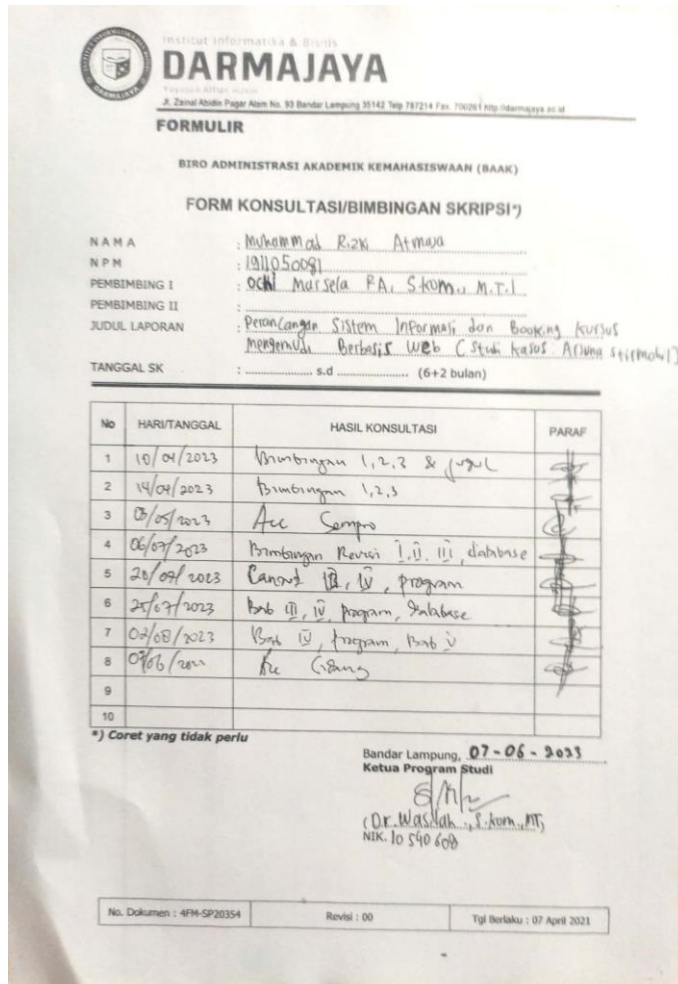 Institut Informatika & Bisnis
DARMAJAYA
Yayasan Alfian Husin
Jl. Zainal Abidin Pagar Alam No. 93 Bandar Lampung 35142 Telp 787214 Fax. 700261 http://darmajaya.ac.id
FORMULIR
BIRO ADMINISTRASI AKADEMIK KEMAHASISWAAN (BAAK)
FORM KONSULTASI/BIMBINGAN SKRIPSI*)
N A M A : Muhammad Rizki Atmaja
N P M : 1911050081
PEMBIMBING I : Ochi Marsela FA, S.kom., M.T.I
PEMBIMBING II :
JUDUL LAPORAN : Perancangan Sistem Informasi dan Booking Kursus
Mengemudi Berbasis Web (Studi kasus: Arjuna Stirmobil)
TANGGAL SK : .................... s.d .................... (6+2 bulan)
No HARI/TANGGAL HASIL KONSULTASI PARAF
1 10/04/2023 Bimbingan 1,2,3 & judul
2 14/04/2023 Bimbingan 1,2,3
3 03/05/2023 Acc Sempro
4 06/07/2023 Bimbingan Revisi I, II, III, database
5 20/07/2023 III, IV, program
6 25/07/2023 Bab III, IV, program, database
7 02/08/2023 Bab IV, program, Bab V
8 Acc Sidang
9
10
*) Coret yang tidak perlu
Bandar Lampung, 07-06-2023
Ketua Program Studi
(Dr. Wasilah., S.kom., MT)
NIK. 10540608
No. Dokumen : 4FM-SP20354 Revisi : 00 Tgl Berlaku : 07 April 2021